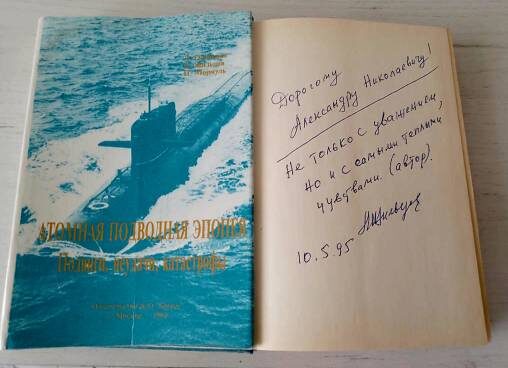 Л. Жильцов
Н. Мормуль
АТОМНАЯ ПОДВОДНАЯ ЭПОПЕЯ
Подвиги, неудачи, катастрофы
Москва
Дорогому
Александру Николаевичу!
Не только с уважением,
но и с самыми теплыми
чувствами. (автор).
10.5.95